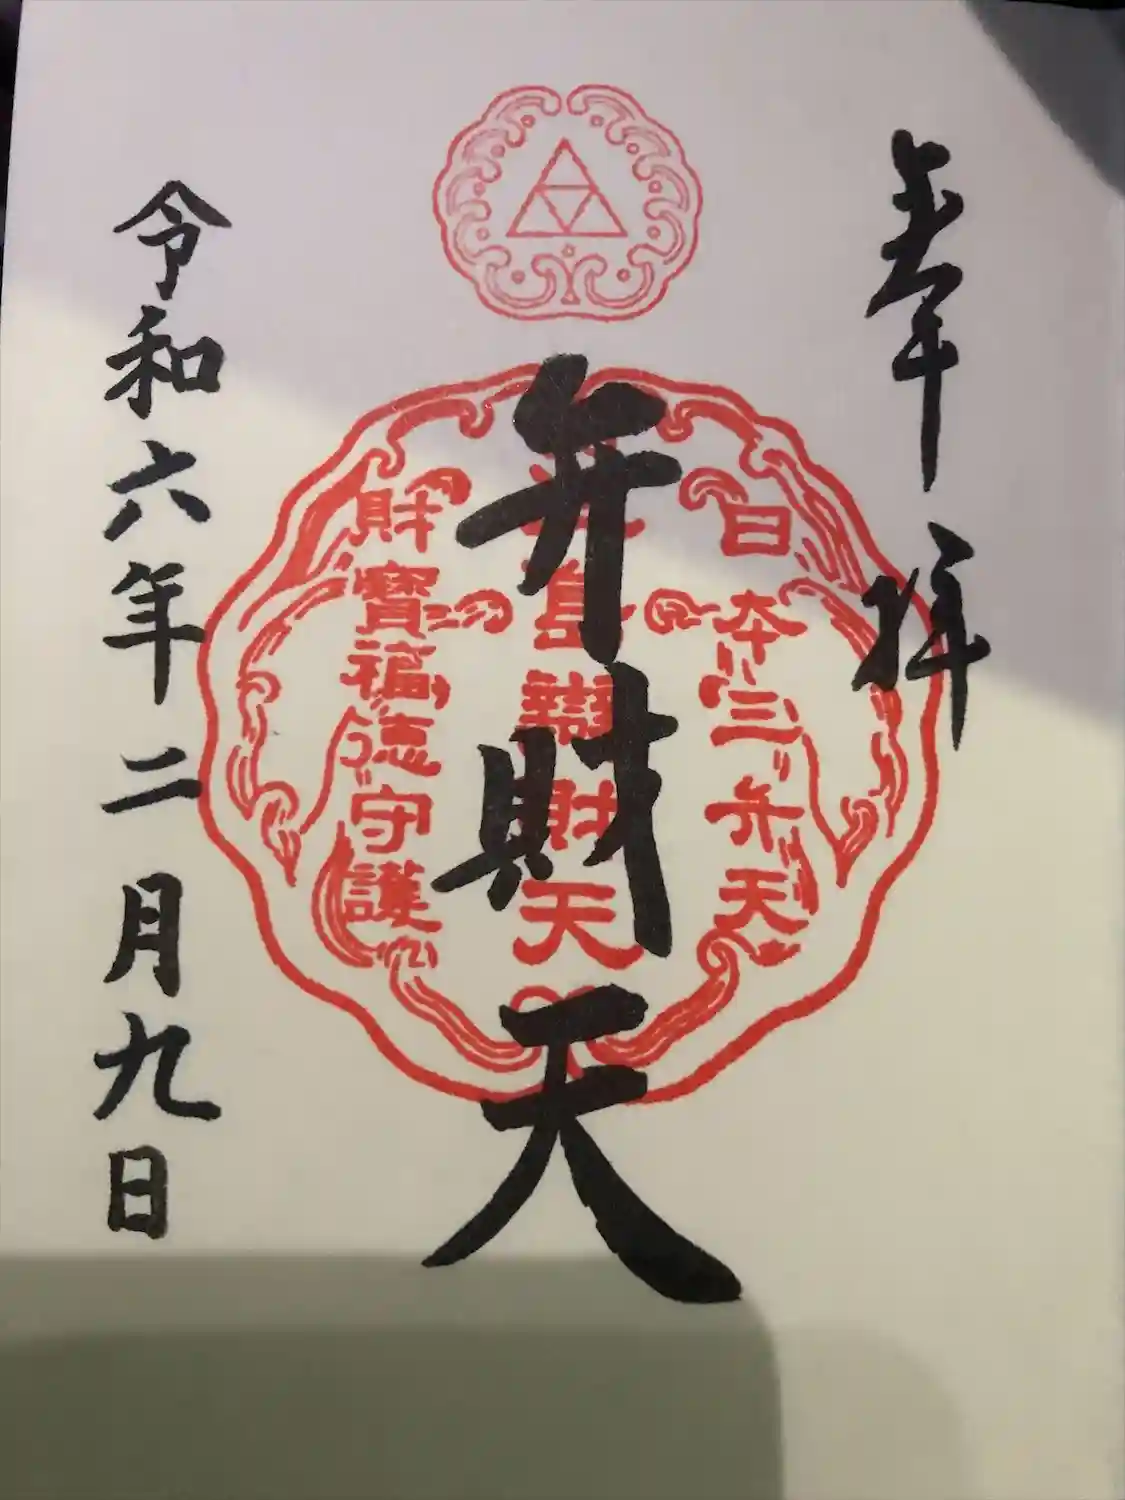 奉拝
日本三弁天
島辯財天
弁財天
財寶福徳守護
令和六年二月九日